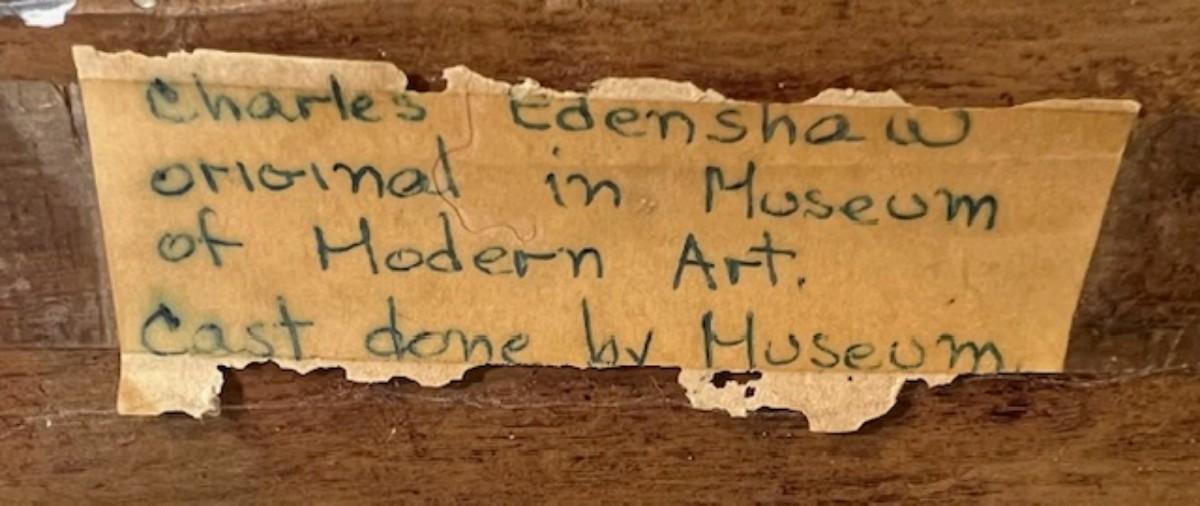 Charles Edenshaw
original in Museum
of Modern Art.
Cast done by Museum.